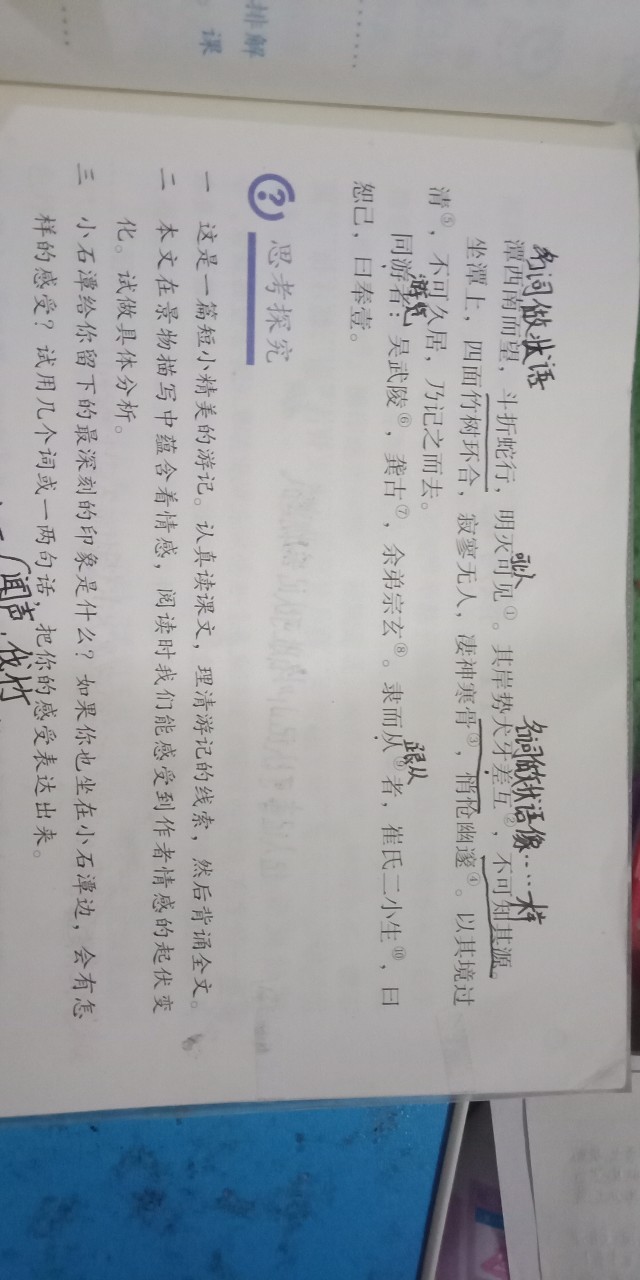 排解
。课
名词做状语
潭西南而望，斗折蛇行，明灭可见①。其岸势犬牙差互②，不可知其源。
坐潭上，四面竹树环合，寂寥无人，凄神寒骨③，悄怆幽邃④。以其境过
清⑤，不可久居，乃记之而去。
同游者：吴武陵⑥，龚古⑦，余弟宗玄⑧。隶而从⑨者，崔氏二小生⑩，曰
恕己，曰奉壹。
名词做状语像……样
跟从
思考探究
一 这是一篇短小精美的游记。认真读课文，理清游记的线索，然后背诵全文。
二 本文在景物描写中蕴含着情感，阅读时我们能感受到作者情感的起伏变
化。试做具体分析。
三 小石潭给你留下的最深刻的印象是什么？如果你也坐在小石潭边，会有怎
样的感受？试用几个词或一两句话，把你的感受表达出来。
闻声，伐竹